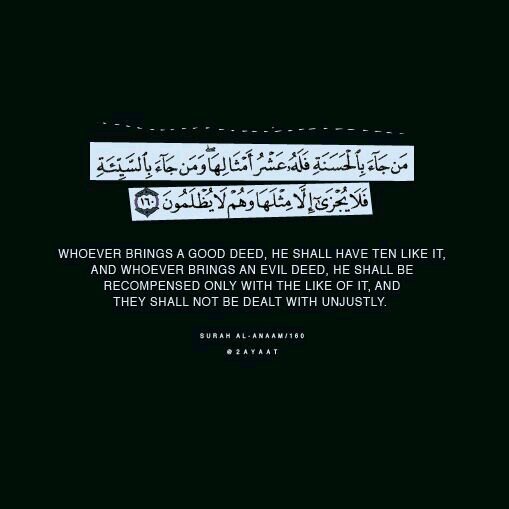 مَن جَآءَ بِٱلْحَسَنَةِ فَلَهُۥ عَشْرُ أَمْثَالِهَا ۖ وَمَن جَآءَ بِٱلسَّيِّئَةِ
فَلَا يُجْزَىٰٓ إِلَّا مِثْلَهَا وَهُمْ لَا يُظْلَمُونَ ١٦٠
WHOEVER BRINGS A GOOD DEED, HE SHALL HAVE TEN LIKE IT,
AND WHOEVER BRINGS AN EVIL DEED, HE SHALL BE
RECOMPENSED ONLY WITH THE LIKE OF IT, AND
THEY SHALL NOT BE DEALT WITH UNJUSTLY.
SURAH AL-ANAAM/160
@2AYAAT